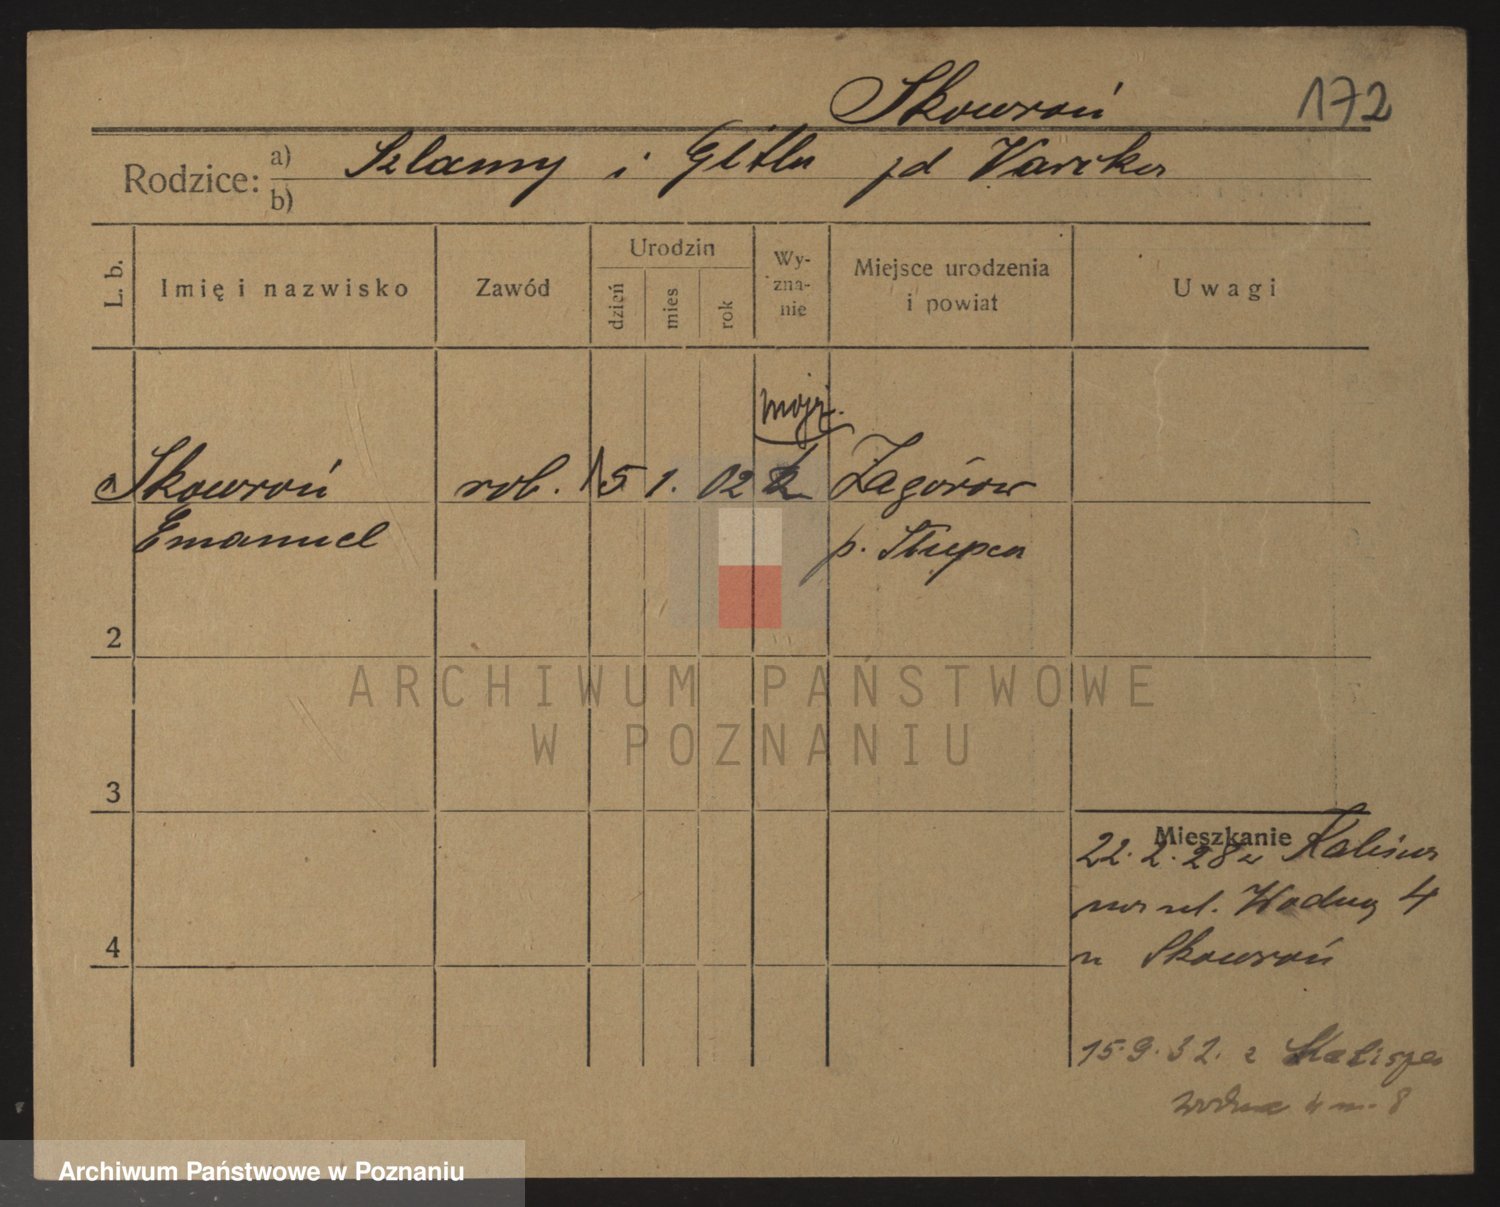 Skowroń 172
Rodzice: a) Szlamy i Gitla
b)
L. b. Imię i nazwisko Zawód Urodzin dzień mies rok Wy-zna-nie Miejsce urodzenia i powiat Uwagi
mojż.
Skowroń rob. 15 1. 02 Zagórów
Emanuel p. Słupca
2
ARCHIWUM PAŃSTWOWE
W POZNANIU
3
Mieszkanie
22.2.28 z Kalisza
na ul. Wodną 4
4
u Skowroń
15.9.32. z Kalisza
Wodna 4 m. 8
Archiwum Państwowe w Poznaniu